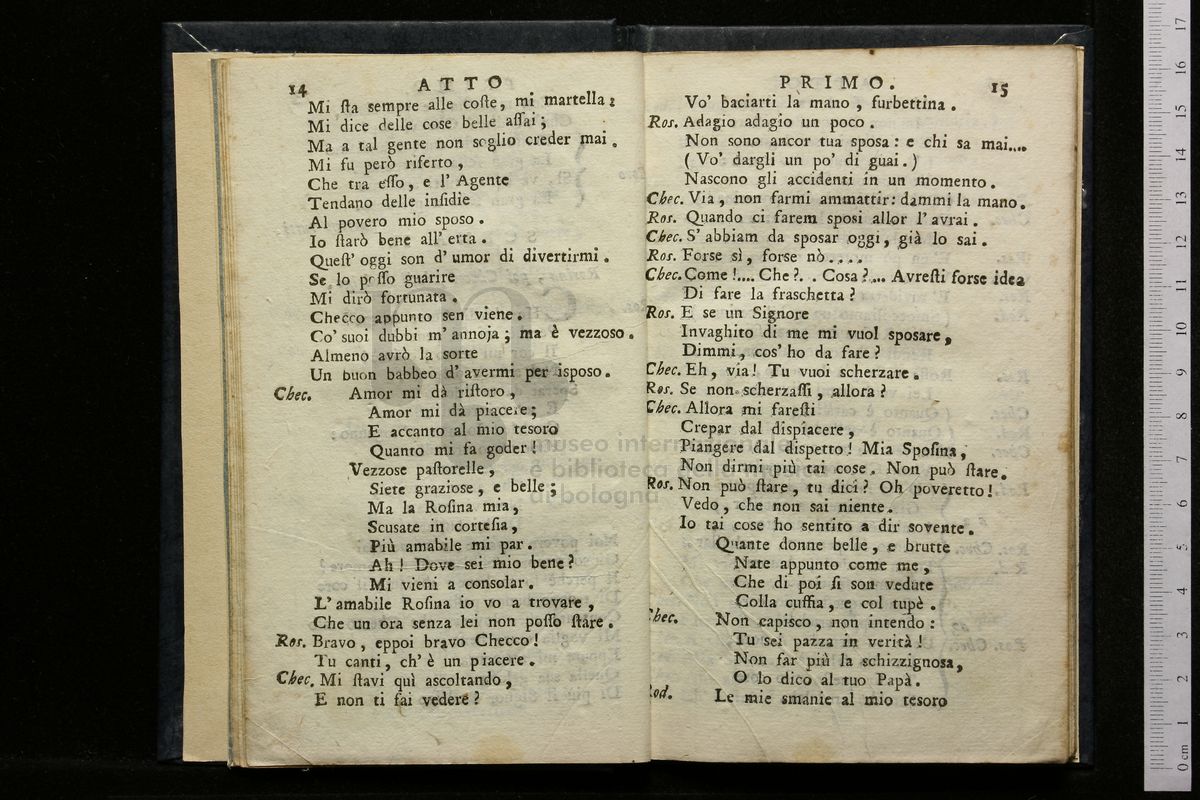 14 ATTO
Mi sta sempre alle coste, mi martella;
Mi dice delle cose belle assai;
Ma a tal gente non soglio creder mai.
Mi fu però riferto,
Che tra esso, e l' Agente
Tendano delle insidie
Al povero mio sposo.
Io starò bene all' erta.
Quest' oggi son d' umor di divertirmi.
Se lo posso guarire
Mi dirò fortunata.
Checco appunto sen viene.
Co' suoi dubbi m' annoja; ma è vezzoso.
Almeno avrò la sorte
Un buon babbeo d' avermi per isposo.
Chec. Amor mi dà ristoro,
Amor mi dà piacere;
E accanto al mio tesoro
Quanto mi fa goder!
Vezzose pastorelle,
Siete graziose, e belle;
Ma la Rosina mia,
Scusate in cortesia,
Più amabile mi par.
Ah! Dove sei mio bene?
Mi vieni a consolar.
L' amabile Rosina io vo a trovare,
Che un ora senza lei non posso stare.
Ros. Bravo, eppoi bravo Checco!
Tu canti, ch' è un piacere.
Chec. Mi stavi quì ascoltando,
E non ti fai vedere?
PRIMO. 15
Vo' baciarti la mano, furbettina.
Ros. Adagio adagio un poco.
Non sono ancor tua sposa: e chi sa mai....
(Vo' dargli un po' di guai.)
Nascono gli accidenti in un momento.
Chec. Via, non farmi ammattir: dammi la mano.
Ros. Quando ci farem sposi allor l' avrai.
Chec. S' abbiam da sposar oggi, già lo sai.
Ros. Forse sì, forse nò....
Chec. Come!.... Che?.. Cosa?... Avresti forse idea
Di fare la fraschetta?
Ros. E se un Signore
Invaghito di me mi vuol sposare,
Dimmi, cos' ho da fare?
Chec. Eh, via! Tu vuoi scherzare.
Ros. Se non scherzassi, allora?
Chec. Allora mi faresti
Crepar dal dispiacere,
Piangere dal dispetto! Mia Sposina,
Non dirmi più tai cose. Non può stare.
Ros. Non può stare, tu dici? Oh poveretto!
Vedo, che non sai niente.
Io tai cose ho sentito a dir sovente.
Quante donne belle, e brutte
Nate appunto come me,
Che di poi si son vedute
Colla cuffia, e col tupè.
Chec. Non capisco, non intendo:
Tu sei pazza in verità!
Non far più la schizzignosa,
O lo dico al tuo Papà.
Rod. Le mie smanie al mio tesoro
museo internazionale
e biblioteca della musica
di bologna